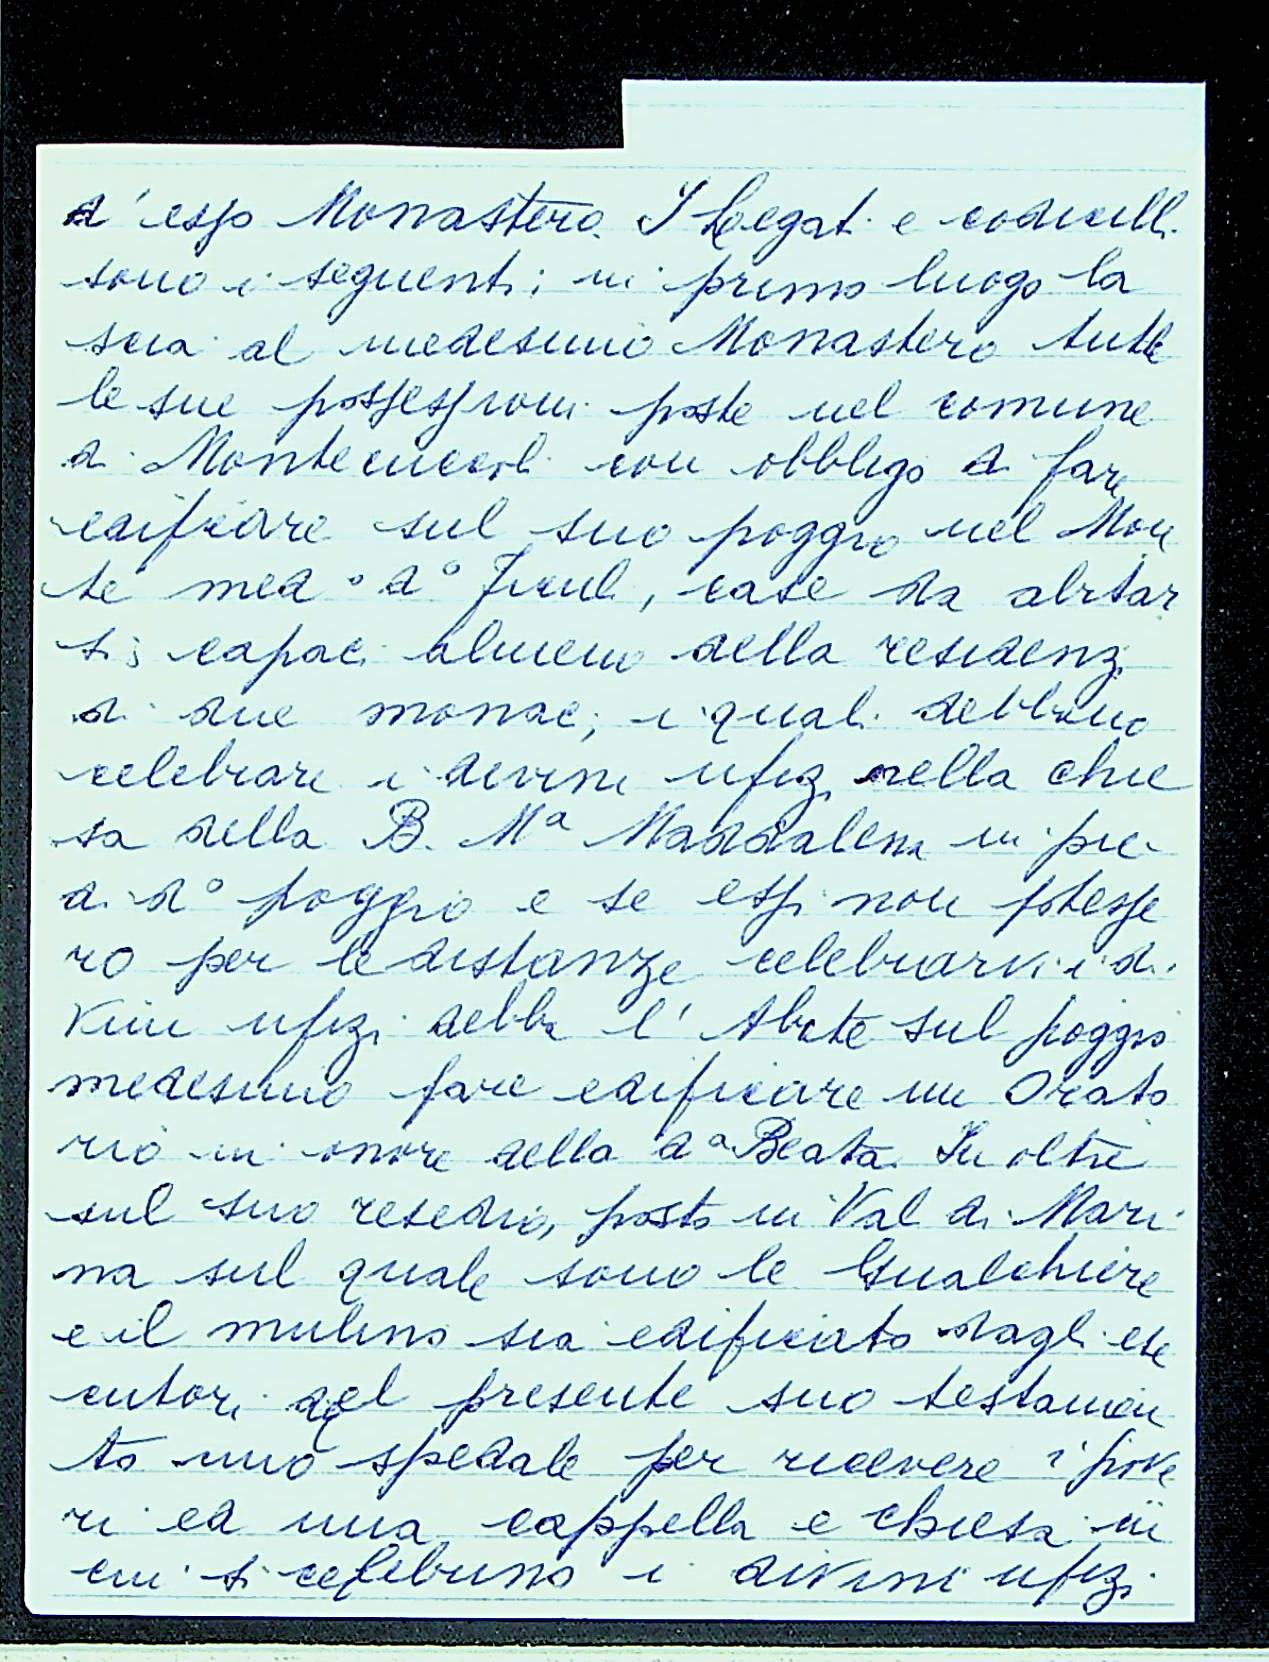 d'esso Monastero. I Legati e codicilli
sono i seguenti; in primo luogo la
scia al medesimo Monastero tutte
le sue possessioni poste nel comune
di Montecuccoli con obbligo di fare
edificare sul suo poggio nel Mon
te med° d°, case da abitar
si; capaci almeno della residenz
di due monaci, i quali debbano
celebrare i divini ufizi nella chie
sa della B. Mª Maddalena in pie
di d° poggio e se essi non potesse
ro per le distanze celebrarvi i di
vini ufizi debba l'Abate sul poggio
medesimo fare edificare un Orato
rio in onore della dª Beata. In oltre
sul suo resedio, posto in Val di Mari
na sul quale sono le Gualchiere
e il mulino sia edificato dagli ese
cutori del presente suo testamen
to uno spedale per ricevere i pove
ri ed una cappella e chiesa in
cui si celebrino i divini ufizi